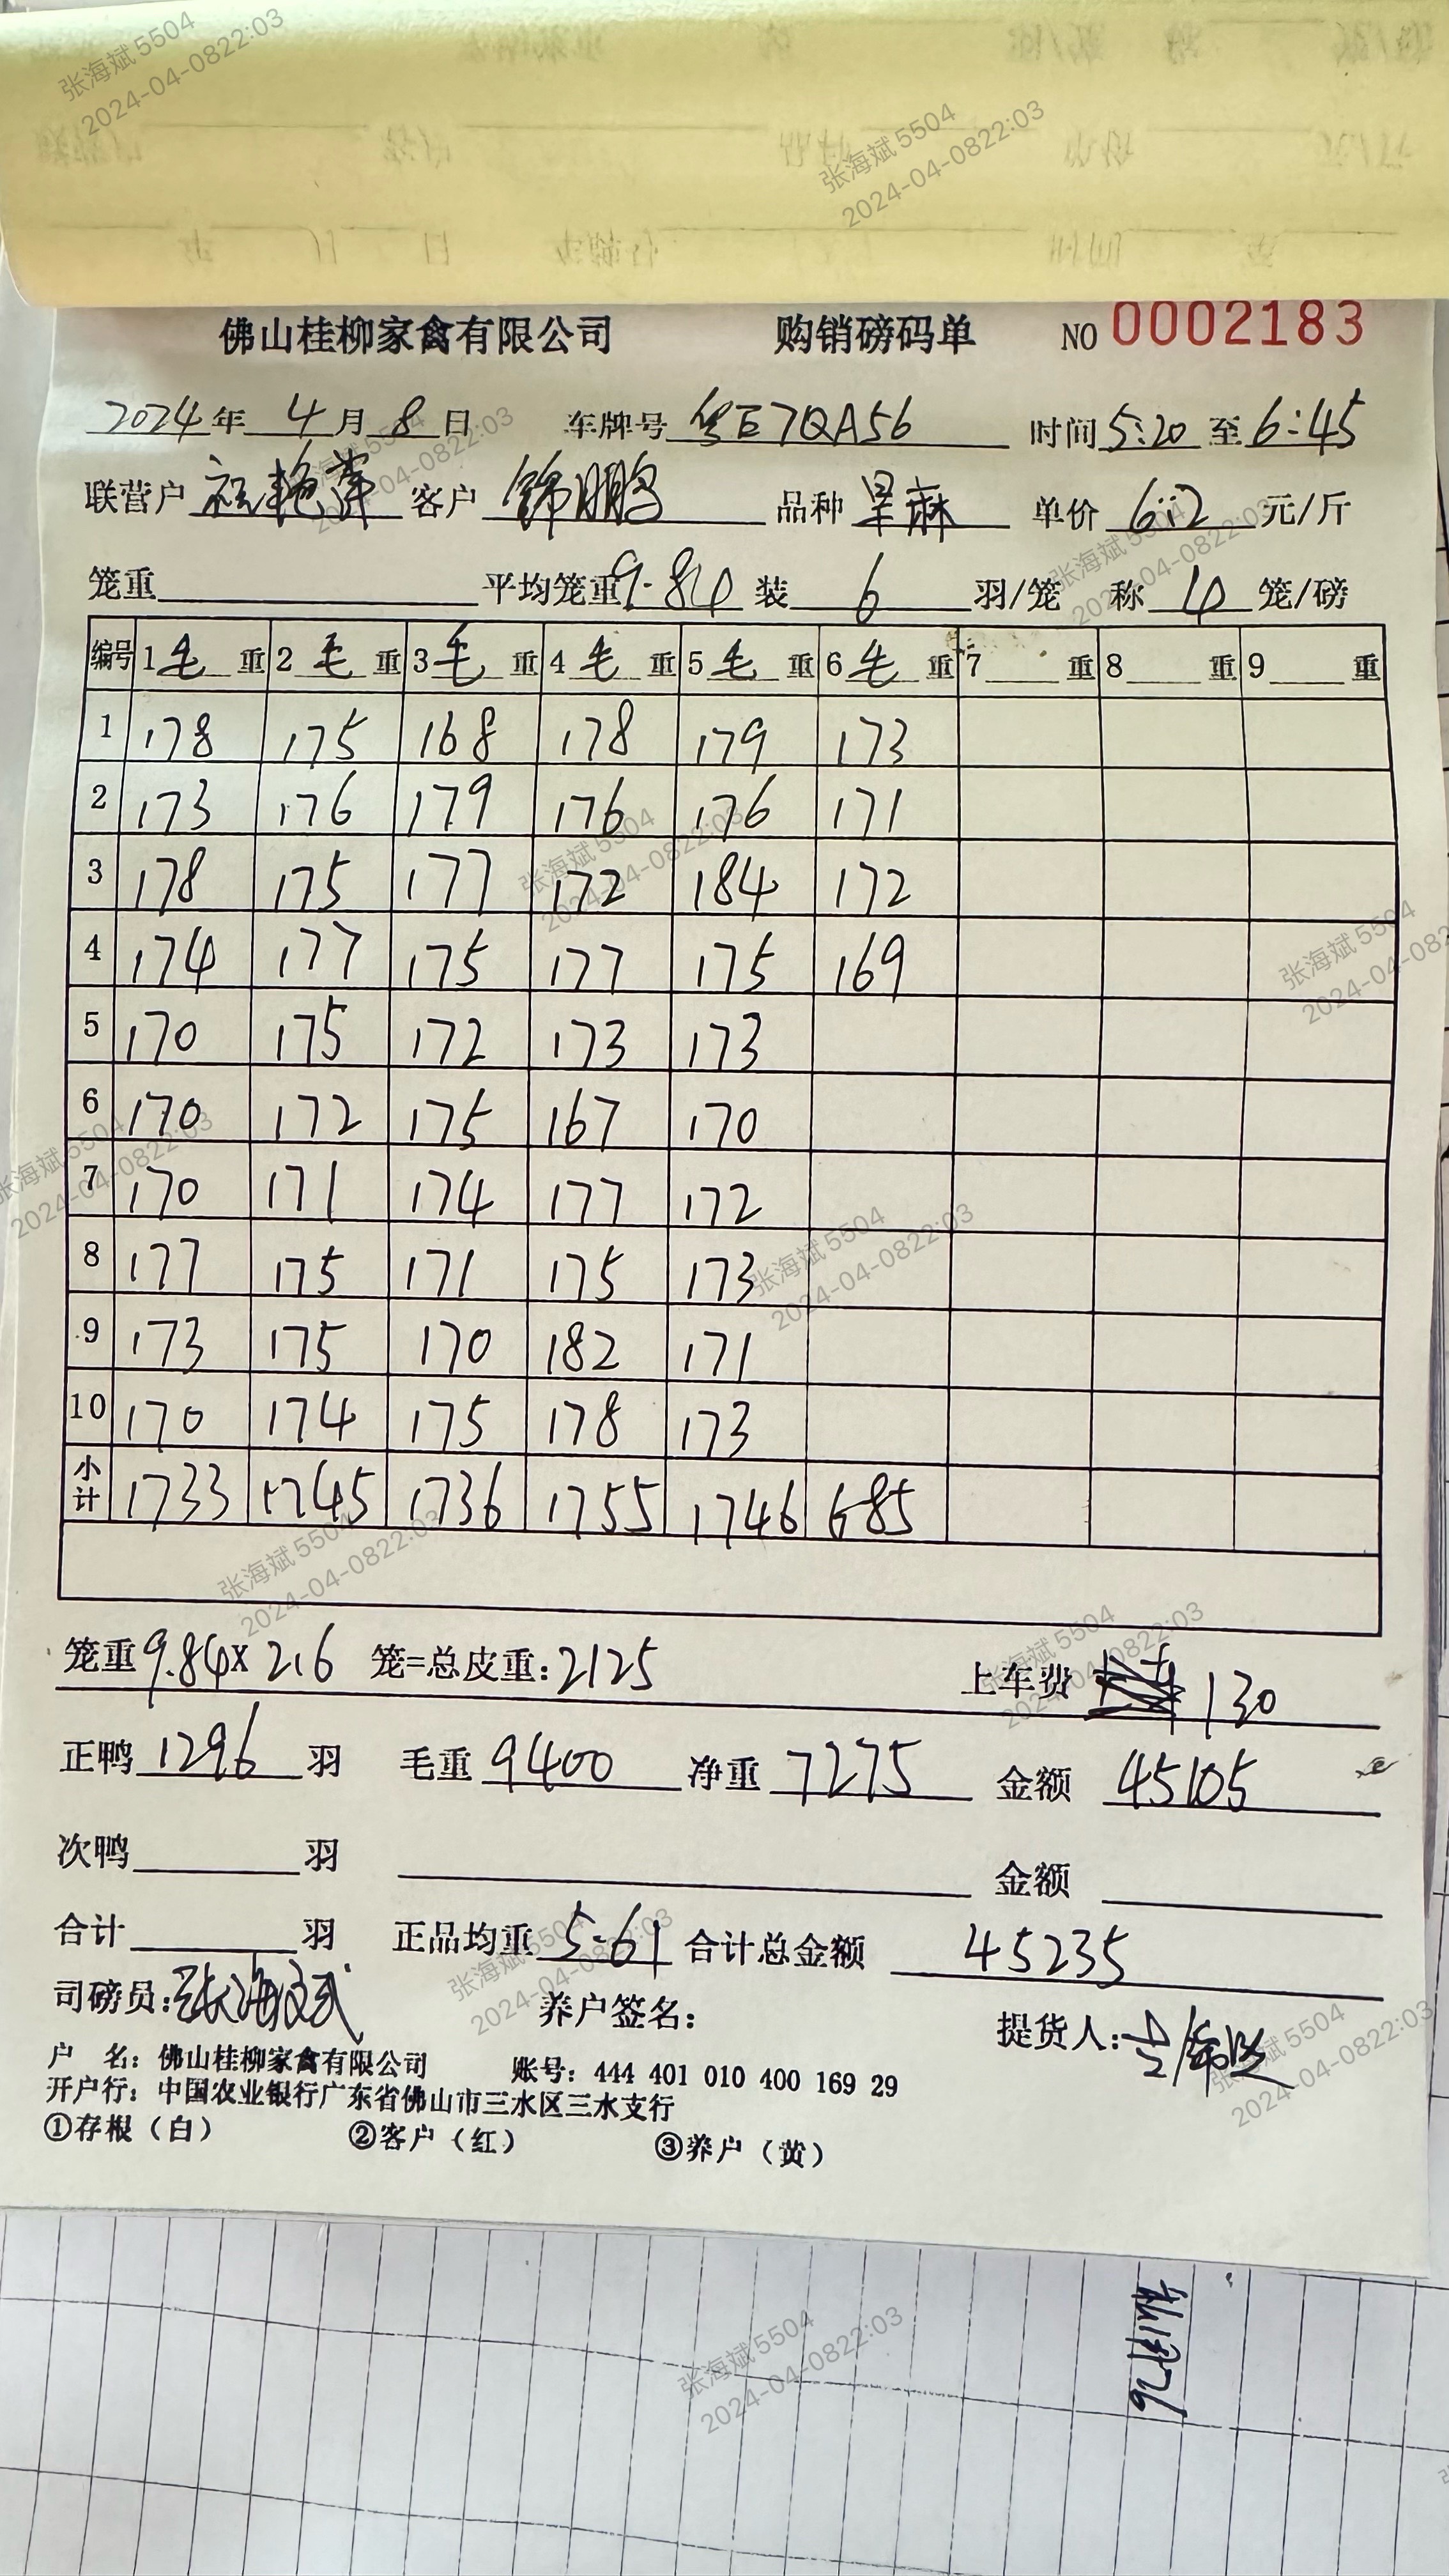 佛山桂柳家禽有限公司 购销磅码单 NO 0002183
2024年 4月 8日 车牌号 粤E7QA56 时间 5:20 至 6:45
联营户 客户 锦鹏 品种 单价 6.2 元/斤
笼重 平均笼重 9.84 装 6 羽/笼 称 4 笼/磅
编号 1毛重 2毛重 3毛重 4毛重 5毛重 6毛重 7 重 8 重 9 重
1 178 175 168 178 179 173
2 173 176 179 176 176 171
3 178 175 177 172 184 172
4 174 177 175 177 175 169
5 170 175 172 173 173
6 170 172 175 167 170
7 170 171 174 177 172
8 177 175 171 175 173
9 173 175 170 182 171
10 170 174 175 178 173
小计 1733 1745 1736 1755 1746 685
笼重 9.84 x 216 笼=总皮重: 2125 上车费 130
正鸭 1296 羽 毛重 9400 净重 7275 金额 45105
次鸭 羽 金额
合计 羽 正品均重 5.61 合计总金额 45235
司磅员: 张海斌 养户签名: 提货人:
户 名: 佛山桂柳家禽有限公司 账号: 444 401 010 400 169 29
开户行: 中国农业银行广东省佛山市三水区三水支行
①存根(白) ②客户(红) ③养户(黄)
张海斌 5504
2024-04-0822:03